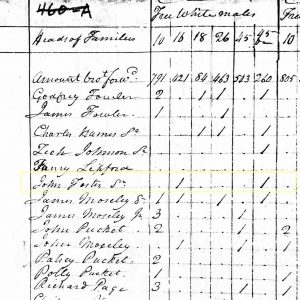 460-A
Free White males
Heads of Families 10 16 18 26 45 45 10
Amount brot forwd 791 421 84 463 503 260 805
Godfrey Fowler 2 1 1
James Fowler 1 1
Charles Eames Sr 1 1
Zech Johnson Sr 1 1
Fanny Lipford
John Foster Sr 1 1
James Moseley Sr 1 1 1 1
James Moseley Jr 3 1
John Pucket 2 1 2
John Moseley 1 1 1
Patsey Pucket 2
Polly Pucket 1
Richard Page 3 1